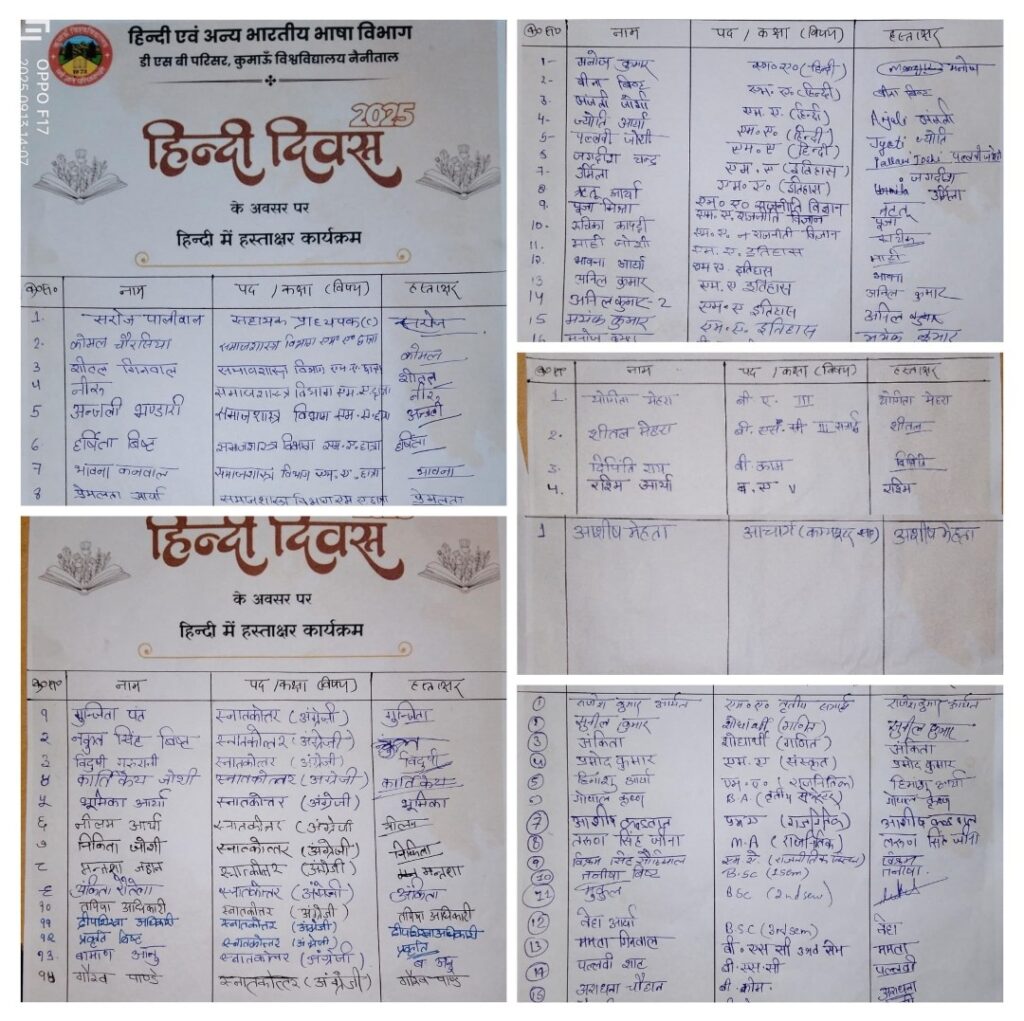 हिन्दी एवं अन्य भारतीय भाषा विभाग
डी एस बी परिसर, कुमाऊँ विश्वविद्यालय नैनीताल
OPPO F17
2025.09.13 14:07
2025
हिन्दी दिवस
के अवसर पर
हिन्दी में हस्ताक्षर कार्यक्रम
क्र०सं० नाम पद / कक्षा (विषय) हस्ताक्षर
1. सरोज पालीवाल सहायक प्राध्यापक(c) सरोज
2. कोमल चौरसिया समाजशास्त्र विभाग एम० ए० छात्रा कोमल
3 शीतल गिनवाल समाजशास्त्र विभाग एम.ए. छात्रा शीतल
4 नीरू समाजशास्त्र विभाग एम.ए. छात्रा नीरू
5 अन्जली भण्डारी समाजशास्त्र विभाग एम.ए. छात्रा अन्जली
6 हर्षिता बिष्ट समाजशास्त्र विभाग एम.ए. छात्रा हर्षिता
7 भावना कनवाल समाजशास्त्र विभाग एम.ए. छात्रा भावना
8 प्रेमलता आर्या समाजशास्त्र विभाग एम ए छात्रा प्रेमलता
क्र०सं० नाम पद / कक्षा (विषय) हस्ताक्षर
1- मनोज कुमार (हिन्दी) मनोज
2- बीना बिष्ट एम. ए. (हिन्दी) बीना बिष्ट
3. अंजली जोशी एम. ए. (हिन्दी) Anjali अंजली
4- ज्योति आर्या एम. ए. (हिन्दी) Jyoti ज्योति
5- पल्लवी जोशी एम० ए (हिन्दी) Pallavi Joshi पल्लवी जोशी
6 जगदीश चन्द्र एम. ए (इतिहास) जगदीश
7- उर्मिला एम. ए. (इतिहास) उर्मिला
8 ऋतू आर्या एम० ए० राजनीति विज्ञान
9. पूजा मिश्रा एम. ए. राजनीति विज्ञान पूजा
10. एम. ए राजनीती विज्ञान
11. माही जोशी एम. ए. इतिहास माही
12. भावना आर्या एम ए. इतिहास भावना
13 अनिल कुमार एम. ए इतिहास अनिल कुमार
14 अनिल कुमार-2 एम० ए इतिहास अनिल कुमार
15 मयंक कुमार एम. ए. इतिहास मयंक कुमार
क्र०सं० नाम पद / कक्षा (विषय) हस्ताक्षर
1. योगिता मेहरा बी ए. III योगिता मेहरा
2. शीतल मेहरा बी. एस. सी III शीतल
3. राय बी. काम
4. रश्मि आर्या ब. ए V रश्मि
1 आशीष मेहता आचार्य आशीष मेहता
हिन्दी दिवस
के अवसर पर
हिन्दी में हस्ताक्षर कार्यक्रम
क्र०सं० नाम पद / कक्षा (विषय) हस्ताक्षर
१ गुन्जिता पंत स्नातकोत्तर (अंग्रेजी) गुन्जिता
२ नकुल सिंह बिष्ट स्नातकोत्तर (अंग्रेजी) नकुल
३ विदुषी गुरुरानी स्नातकोत्तर (अंग्रेजी) विदुषी
४ कार्तिकेय जोशी स्नातकोत्तर (अंग्रेजी) कार्तिकेय
५ भूमिका आर्या स्नातकोत्तर (अंग्रेजी) भूमिका
६ नीलम आर्या स्नातकोत्तर (अंग्रेजी नीलम
७ निकिता जोशी स्नातकोत्तर (अंग्रेजी) निकिता
८ मन्तशा जहान स्नातकोत्तर (अंग्रेजी) मन्तशा
९ अंकिता स्नातकोत्तर (अंग्रेजी) अंकिता
१० अधिकारी स्नातकोत्तर (अंग्रेजी) अधिकारी
११ दीपशिखा अधिकारी स्नातकोत्तर (अंग्रेजी) दीपशिखा अधिकारी
१२ प्रकृति बिष्ट स्नातकोत्तर (अंग्रेजी) प्रकृति
१३. स्नातकोत्तर (अंग्रेजी)
१४ गौरव पाण्डे स्नातकोत्तर (अंग्रेजी) गौरव पाण्डे
1 कुमार एम० ए० तृतीय
2 सुनील कुमार शोधार्थी (गणित) सुनील कुमार
3 अंकिता शोधार्थी (गणित) अंकिता
4 प्रमोद कुमार एम. ए (संस्कृत) प्रमोद कुमार
5 हिमांशु आर्या एम. ए. हिमांशु आर्या
6 गोपाल कृष्ण B.A. (तृतीय सेमेस्टर) गोपाल कृष्ण
7 आशीष आशीष
8 तरुण सिंह जीना M.A तरुण सिंह जीना
9 विक्रम सिंह विक्रम
10 तनीषा बिष्ट B.SC तनीषा
11 मुकुल BSC (2nd sem)
12 नेहा आर्या B.S.C (3rd sem) नेहा
13 ममता गिनवाल बी० एस सी ममता
14 पल्लवी शाह बी. एस. सी पल्लवी
15 अराधना चौहान बी. कोम. अराधना